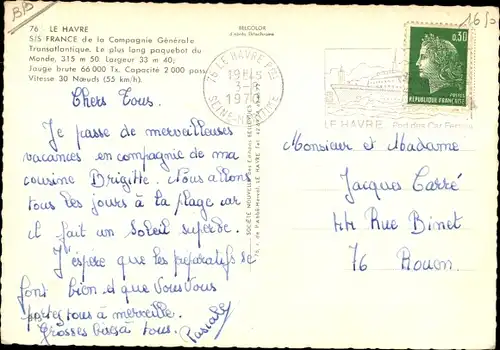 BB
16/5
76 _ LE HAVRE
S/S FRANCE de la Compagnie Générale
Transatlantique. Le plus long paquebot du
Monde. 315 m 50. Largeur 33 m 40;
Jauge brute 66 000 Tx. Capacité 2 000 pass.
Vitesse 30 Nœuds (55 km/h).
BELCOLOR
76 LE HAVRE Pal
19H45
1970
SEINE-MARITIME
0,30
POSTES
REPUBLIQUE FRANÇAISE
LE HAVRE Port des Car Ferries
Chers Tous.
Je passe de merveilleuses
vacances en compagnie de ma
cousine Brigitte. Nous allons
tous les jours à la plage car
il fait un soleil superbe.
J'espère que les préparatifs se
font bien et que vous vous
portez tous à merveille.
Grosses bises à tous.
Pascale
Monsieur et Madame
Jacques Carré
44 Rue Binet
76 Rouen.